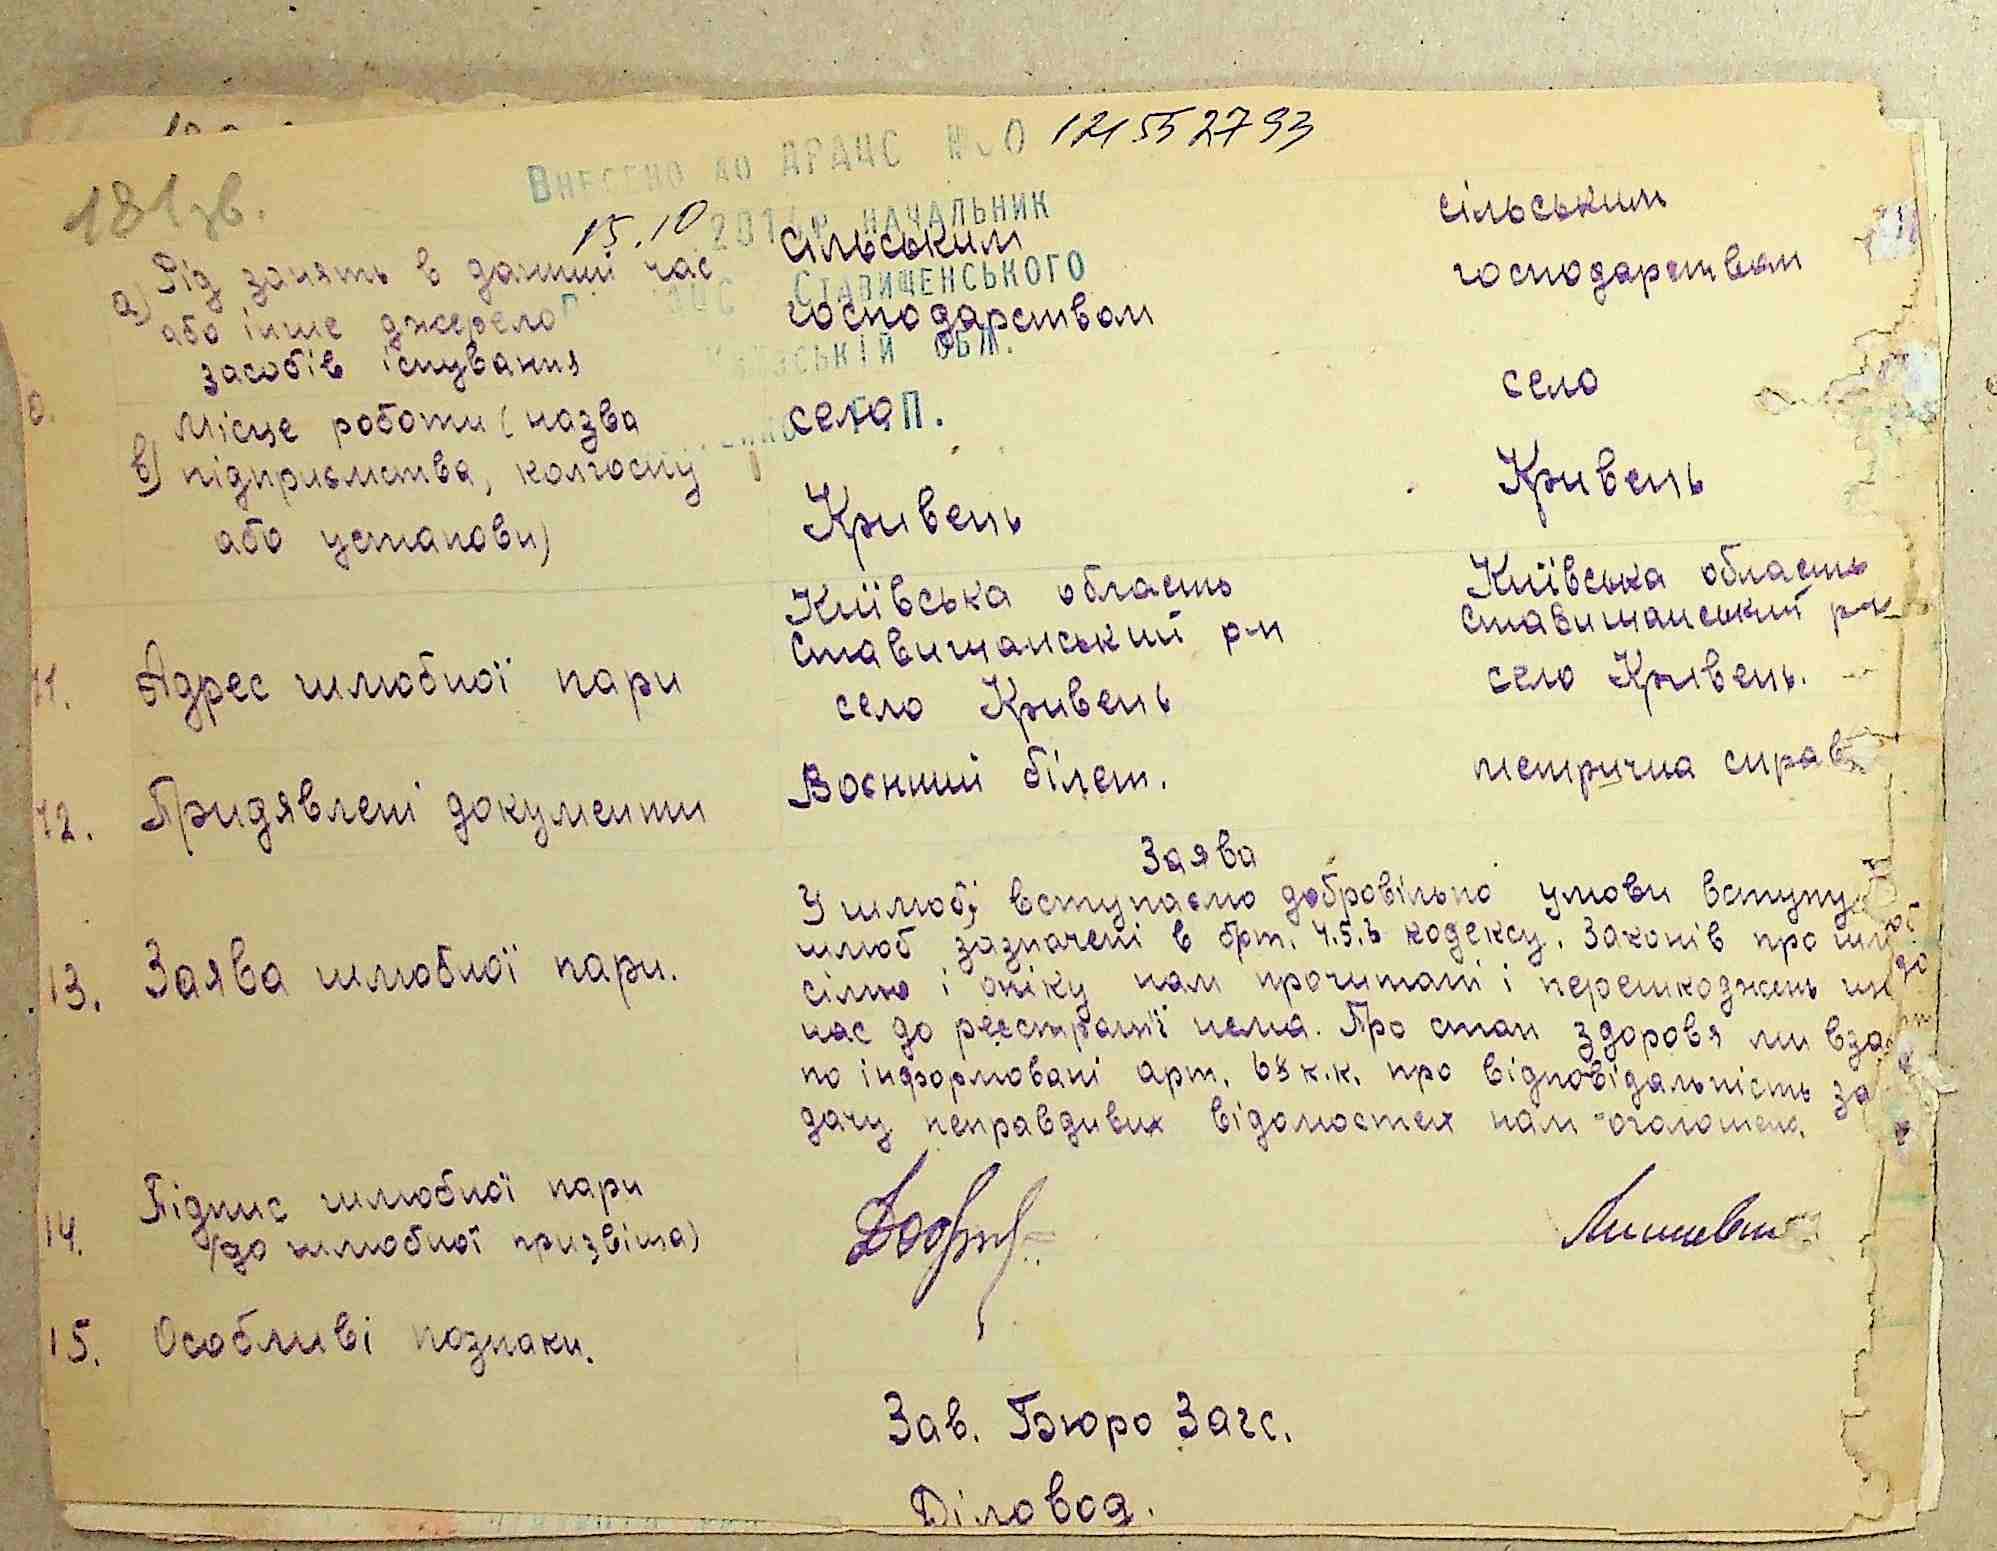 121552793
Внесено до ДРАЦС №
181зв.
15.10 201 р. начальник
Ставищенського
обл.
а) Рід занять в данний час
або інше джерело
засобів існування
сільським
господарством
сільським
господарством
в) Місце роботи (назва
підприємства, колгоспу
або установи)
село
Кривень
село
Кривень
11. Адрес шлюбної пари
Київська область
Ставищанський р-н
село Кривень
Київська область
Ставищанський р-н
село Кривень.
12. Придявлені документи
Воєнний білет.
метрична справ
13. Заява шлюбної пари.
Заява
У шлюбі вступаємо добровільно умови вступу
шлюб зазначені в арт. 4.5.6 кодексу. Законів про шлюб
сімю і опіку нам прочитані і перешкоджень
нас до реєстрації нема. Про стан здоровя ми вза
но інформовані арт. 68 к.к. про відповідальність за
дачу неправдивих відомостех нам оголошена.
14. Підпис шлюбної пари
(до шлюбної призвіща)
15. Особливі познаки.
Зав. Бюро Загс.
Діловод.